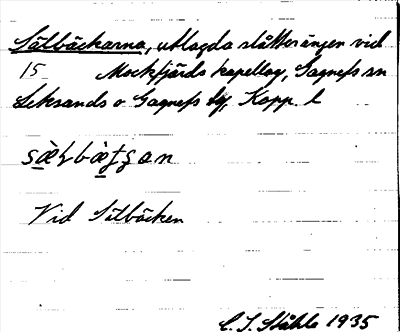 Sälbäckarna, utlagda slåtterängen vid
15 Mockfjärds kapellag, Gagnefs sn
Leksands o Gagnefs tg, Kopp. l
Vid Sälbäcken
C. I. Ståhle 1935